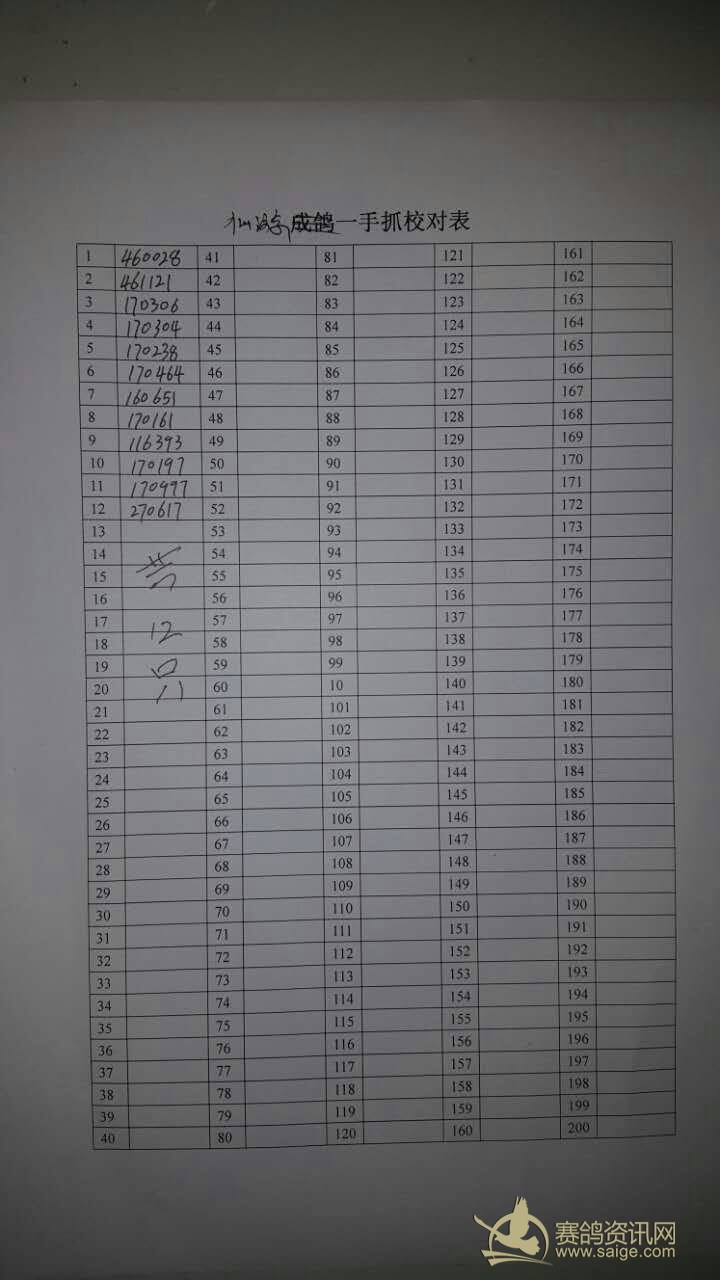 成鸽一手抓校对表
1 460028 41 81 121 161
2 461121 42 82 122 162
3 170306 43 83 123 163
4 170304 44 84 124 164
5 170238 45 85 125 165
6 170464 46 86 126 166
7 160651 47 87 127 167
8 170161 48 88 128 168
9 116393 49 89 129 169
10 170197 50 90 130 170
11 170997 51 91 131 171
12 270617 52 92 132 172
13 53 93 133 173
14 共 54 94 134 174
15 55 95 135 175
16 56 96 136 176
17 12 57 97 137 177
18 58 98 138 178
19 只 59 99 139 179
20 60 10 140 180
21 61 101 141 181
22 62 102 142 182
23 63 103 143 183
24 64 104 144 184
25 65 105 145 185
26 66 106 146 186
27 67 107 147 187
28 68 108 148 188
29 69 109 149 189
30 70 110 150 190
31 71 111 151 191
32 72 112 152 192
33 73 113 153 193
34 74 114 154 194
35 75 115 155 195
36 76 116 156 196
37 77 117 157 197
38 78 118 158 198
39 79 119 159 199
40 80 120 160 200
赛鸽资讯网
www.saige.com